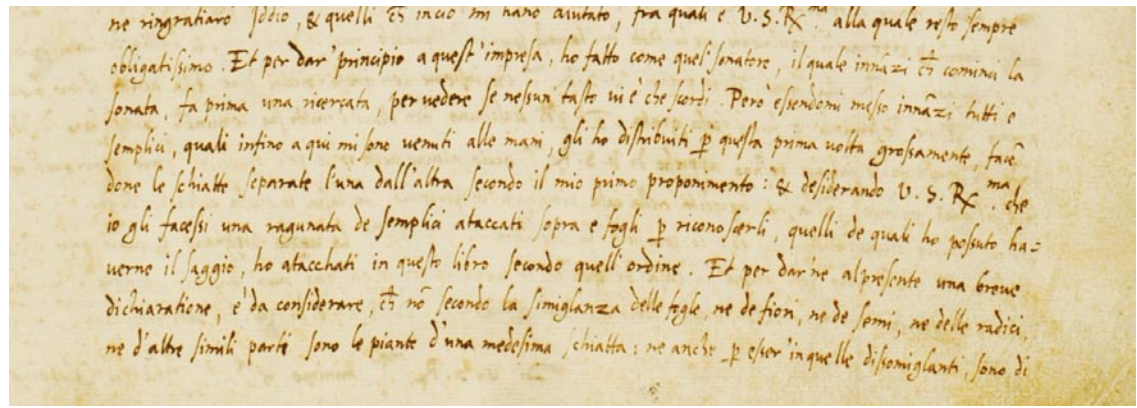 ne ringratiarò Iddio, & quelli ch̃ in ciò mi hano aiutato, fra quali è V. S. R.ma alla quale resto sempre
obligatissimo. Et per dar' principio a quest' impresa, ho fatto come quel sonatore, il quale innãzi ch̃ cominci la
sonata, fa prima una ricercata, per vedere se nessun tasto vi è che scordi. Però essendomi messo innãzi tutti e
semplici, quali infino a qui mi sono venuti alle mani, gli ho distribuiti p̱ questa prima volta grossamente, facẽ
done le schiatte separate l'una dall'altra secondo il mio primo proponimento: & desiderando V. S. R.ma che
io gli facessi una ragunata de semplici ataccati sopra e fogli p̱ riconoscerli, quelli de quali ho possuto ha=
verne il saggio, ho atacchati in questo libro secondo quell' ordine. Et per dar'ne al presente una breve
dichiaratione, e' da considerare, ch̃ nõ secondo la simiglanza delle fogle, ne de fiori, ne de semi, ne delle radici,
ne d'altre simili parti sono le piante d'una medesima schiatta: ne anche p̱ esser' in quelle dissomiglanti, sono di